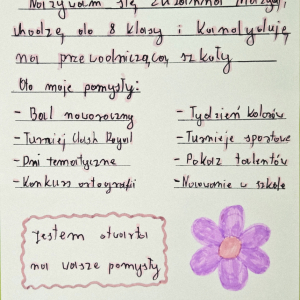 Nazywam się Zuzanna
chodzę do 8 klasy i kandyduję
na przewodniczącą szkoły
Oto moje pomysły:
- Bal noworoczny
- Turniej Clash Royal
- Dni tematyczne
- Konkurs ortografii
- Tydzień kolorów
- Turnieje sportowe
- Pokaz talentów
- Nocowanie w szkole
Jestem otwarta
na wasze pomysły